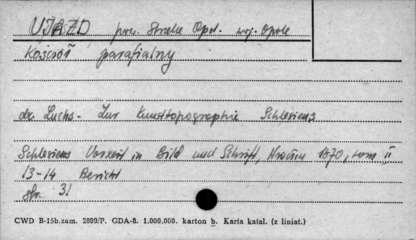 UJAZD pow. Strzelce Opol. woj. Opole
Kościół parafialny
de Luchs - Zur Kunsttopographie Schlesiens
Schlesiens Vorzeit in Bild und Schrift, 1870, tom II
13-14 Bericht
str. 31
CWD B-15b.zam. 2899/P. GDA-8. 1.000.000. karton b. Karta katal. (z liniat.)